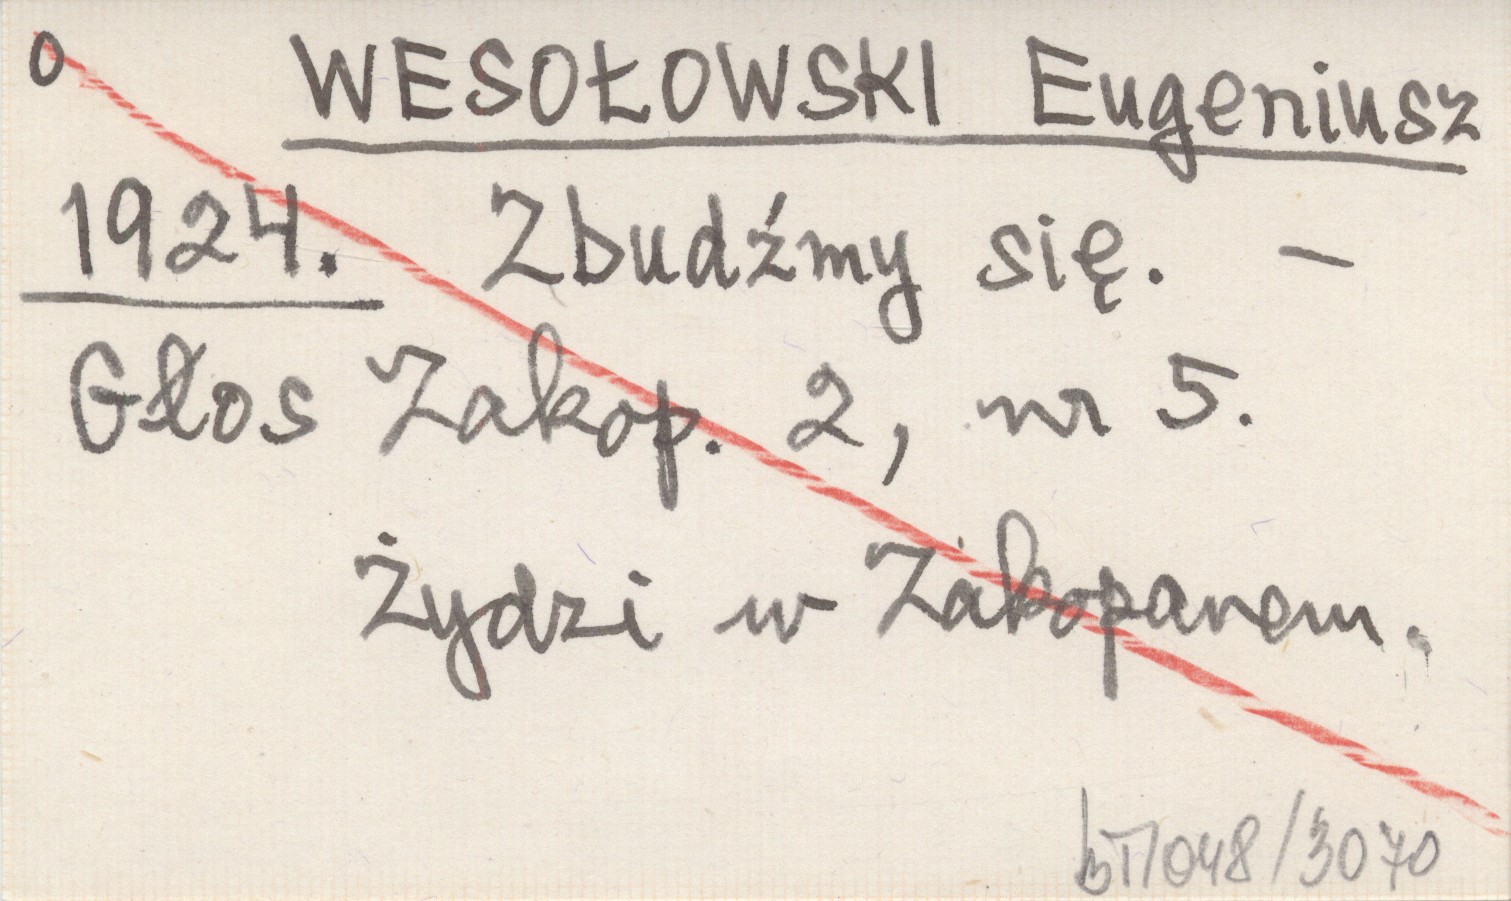 0 WESOŁOWSKI Eugeniusz
1924. Zbudźmy się. –
Głos Zakop. 2, nr 5.
Żydzi w Zakopanem.
bT/048/3070